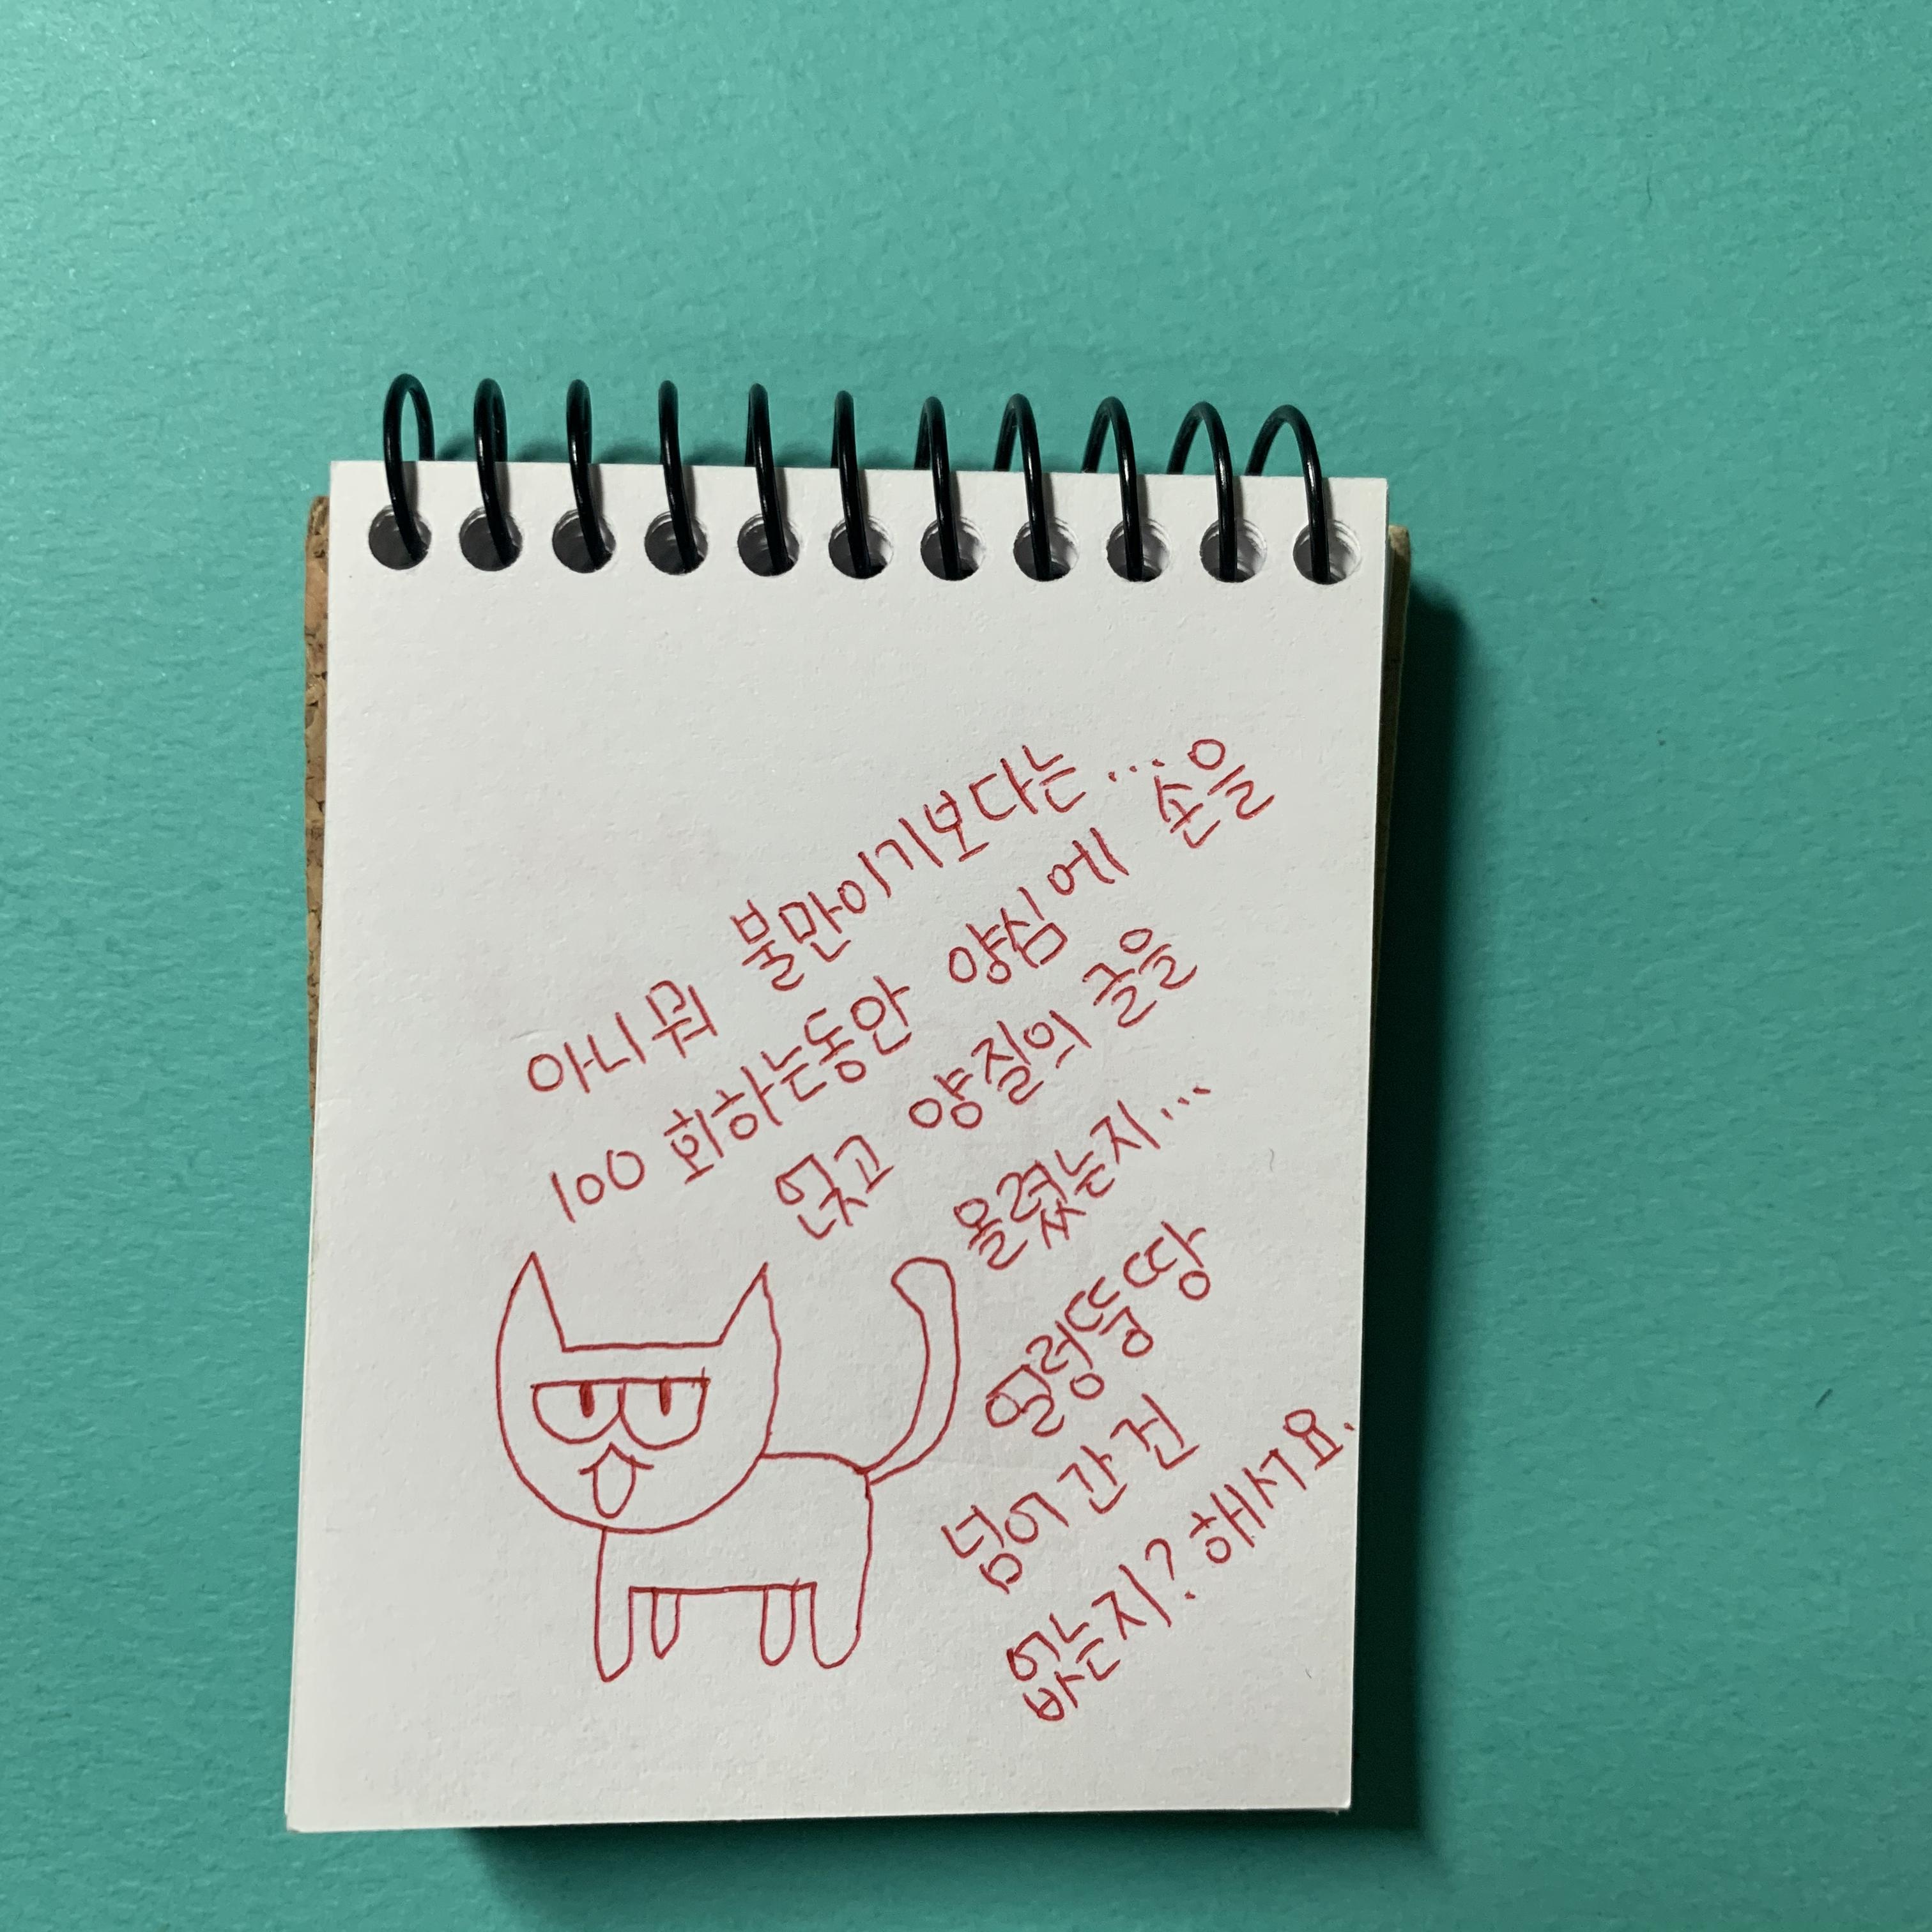 아니 뭐 불만이기보다는...
100회하는동안 양심에 손을
얹고 양질의 글을
올렸는지...
얼렁뚱땅
넘어간건
없는지? 해서요.